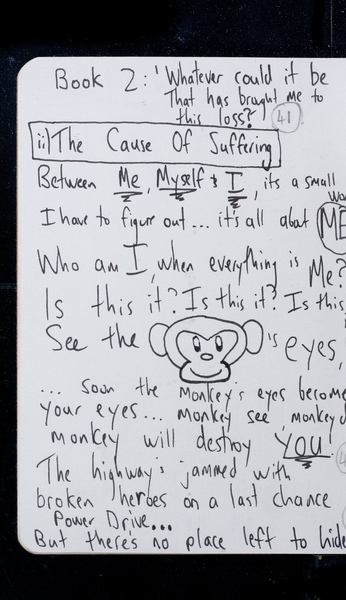 Book 2: 'Whatever could it be
That has brought me to
this loss?' 41
ii) The Cause Of Suffering
Between Me, Myself & I, its a small
I have to figure out... it's all about ME
Who am I, when everything is Me?
Is this it? Is this it? Is this
See the 's eyes,
... soon the monkey's eyes become
your eyes... monkey see, monkey
monkey will destroy YOU!
The highway's jammed with
broken heroes on a last chance
Power Drive...
But there's no place left to hide